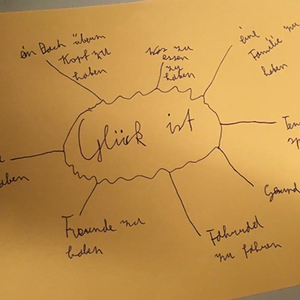 ein Dach überm
Kopf zu
haben
was zu
essen
zu
haben
eine
Familie zu
haben
Glück ist
Ten
sp
haben
Gesund
Freunde zu
haben
Fahrradel
zu fahren